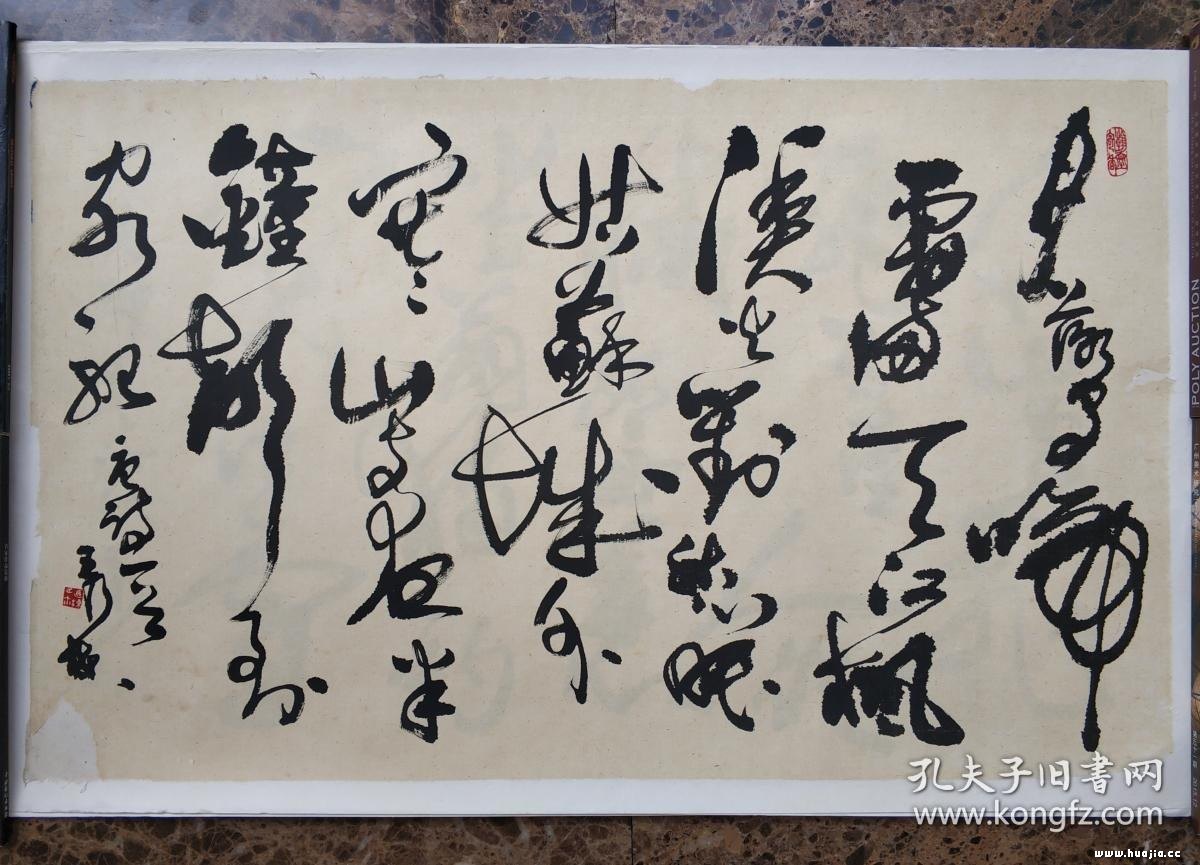 月落烏啼
霜滿天江楓
漁火對愁眠
姑蘇城外
寒山寺夜半
鐘聲到
客船
唐詩一首
POLY AUCTION
孔夫子旧書网
www.kongfz.com
www.huajia.cc